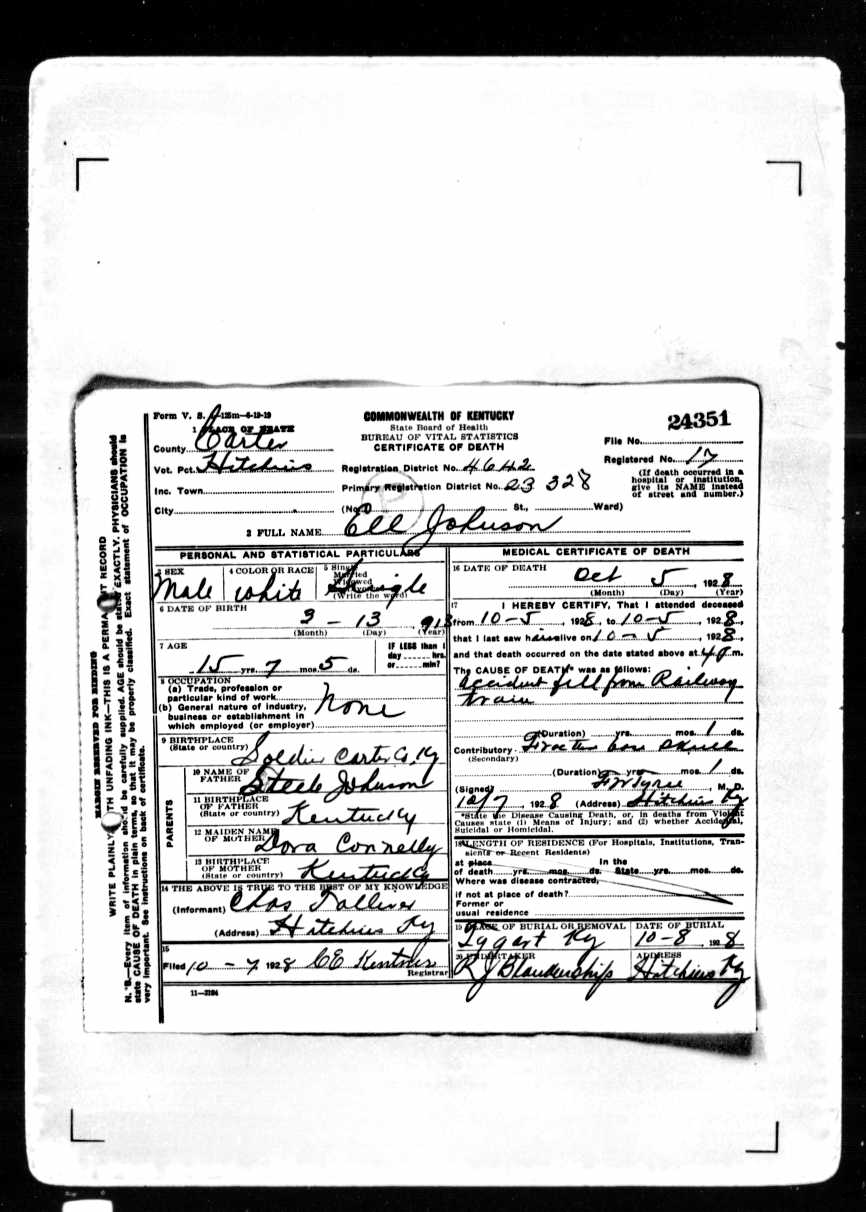 Form V. S. 1-125m-6-19-19
COMMONWEALTH OF KENTUCKY
State Board of Health
BUREAU OF VITAL STATISTICS
CERTIFICATE OF DEATH
24351
File No.
Registered No. 17
(If death occurred in a hospital or institution, give its NAME instead of street and number.)
1 PLACE OF DEATH
County Carter
Vot. Pct. Hitchins
Registration District No. 4642
Inc. Town
Primary Registration District No. 23 328
City
(No. St., Ward)
2 FULL NAME Ell Johnson
PERSONAL AND STATISTICAL PARTICULARS
3 SEX Male
4 COLOR OR RACE white
5 Single Married Widowed (Write the word) Single
6 DATE OF BIRTH 3 - 13 , 913
(Month) (Day) (Year)
7 AGE
15 yrs. 7 mos. 5 ds.
IF LESS than 1 day hrs. or min?
8 OCCUPATION
(a) Trade, profession or particular kind of work
(b) General nature of industry, business or establishment in which employed (or employer) None
9 BIRTHPLACE
(State or country) Soldier Carter Co. Ky
PARENTS
10 NAME OF FATHER Steele Johnson
11 BIRTHPLACE OF FATHER
(State or country) Kentucky
12 MAIDEN NAME OF MOTHER Dora Connelly
13 BIRTHPLACE OF MOTHER
(State or country) Kentucky
14 THE ABOVE IS TRUE TO THE BEST OF MY KNOWLEDGE
(Informant) Chas Tolliver
(Address) Hitchins Ky
15
Filed 10 - 7 1928 CE Kentner
Registrar
11-3184
MEDICAL CERTIFICATE OF DEATH
16 DATE OF DEATH
Oct 5 , 1928
(Month) (Day) (Year)
17 I HEREBY CERTIFY, That I attended deceased
from 10-5 , 1928, to 10-5 , 1928,
that I last saw h alive on 10-5 , 1928,
and that death occurred on the date stated above at m.
The CAUSE OF DEATH* was as follows:
accident fell from Railway
train
(Duration) yrs. mos. 1 ds.
Contributory
(Secondary)
(Duration) yrs. mos. 1 ds.
(Signed) M. D.
10/7 , 1928 (Address) Hitchins Ky
*State the Disease Causing Death, or, in deaths from Violent
Causes state (1) Means of Injury; and (2) whether Accidental,
Suicidal or Homicidal.
18 LENGTH OF RESIDENCE (For Hospitals, Institutions, Transients or Recent Residents)
at place In the
of death yrs. mos. ds. State yrs. mos. ds.
Where was disease contracted,
if not at place of death?
Former or
usual residence
19 PLACE OF BURIAL OR REMOVAL
Tygart Ky
DATE OF BURIAL
10-8 , 1928
20 UNDERTAKER
R J Blankenship
ADDRESS
Hitchins Ky
MARGIN RESERVED FOR BINDING
WRITE PLAINLY, WITH UNFADING INK—THIS IS A PERMANENT RECORD
N. B.—Every item of information should be carefully supplied. AGE should be stated EXACTLY. PHYSICIANS should
state CAUSE OF DEATH in plain terms, so that it may be properly classified. Exact statement of OCCUPATION is
very important. See instructions on back of certificate.